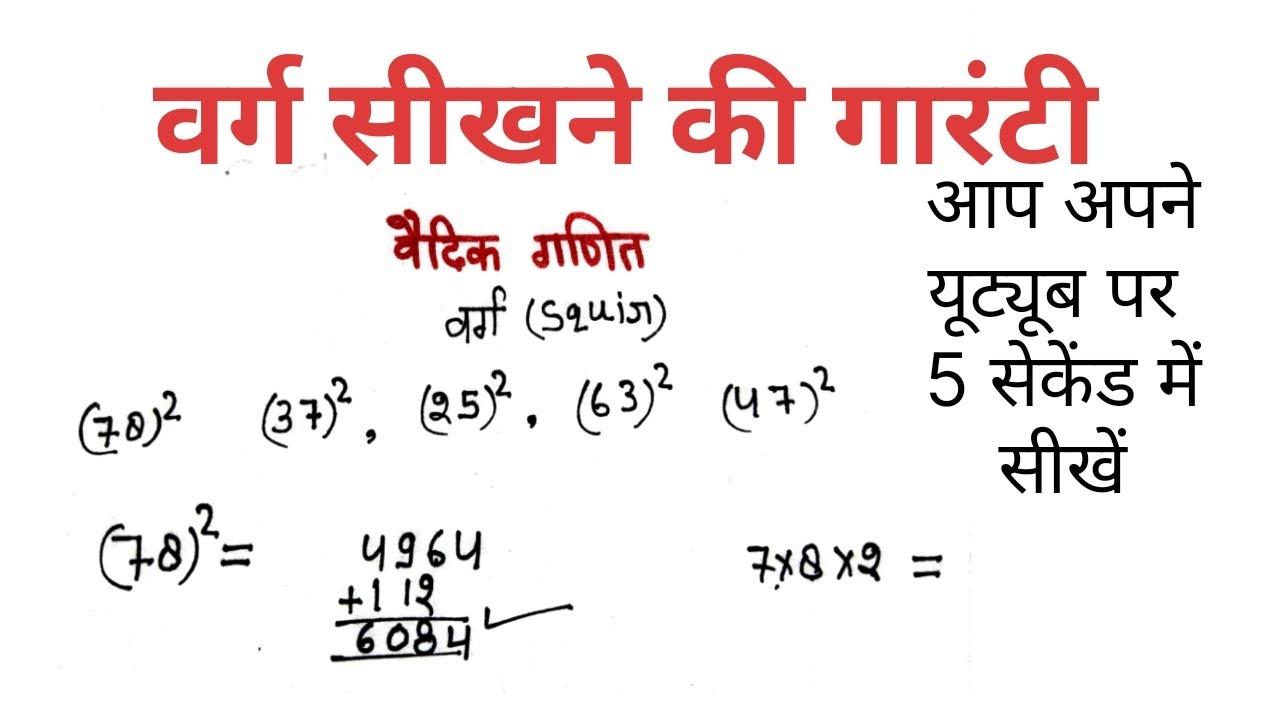 वर्ग सीखने की गारंटी
आप अपने
यूट्यूब पर
5 सेकेंड में
सीखें
वैदिक गणित
वर्ग (Squir)
(78)² (37)², (25)², (63)² (47)²
(78)² = 4964
+112
6084
7×8×2 =